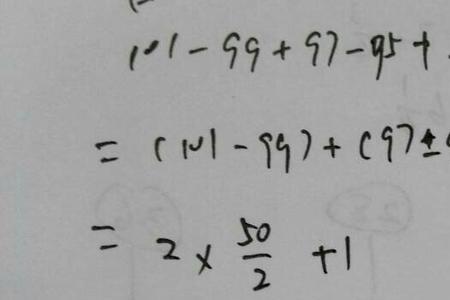 101 - 99 + 97 - 95 +
= (101 - 99) + (97 ±
= 2 × 50/2 + 1